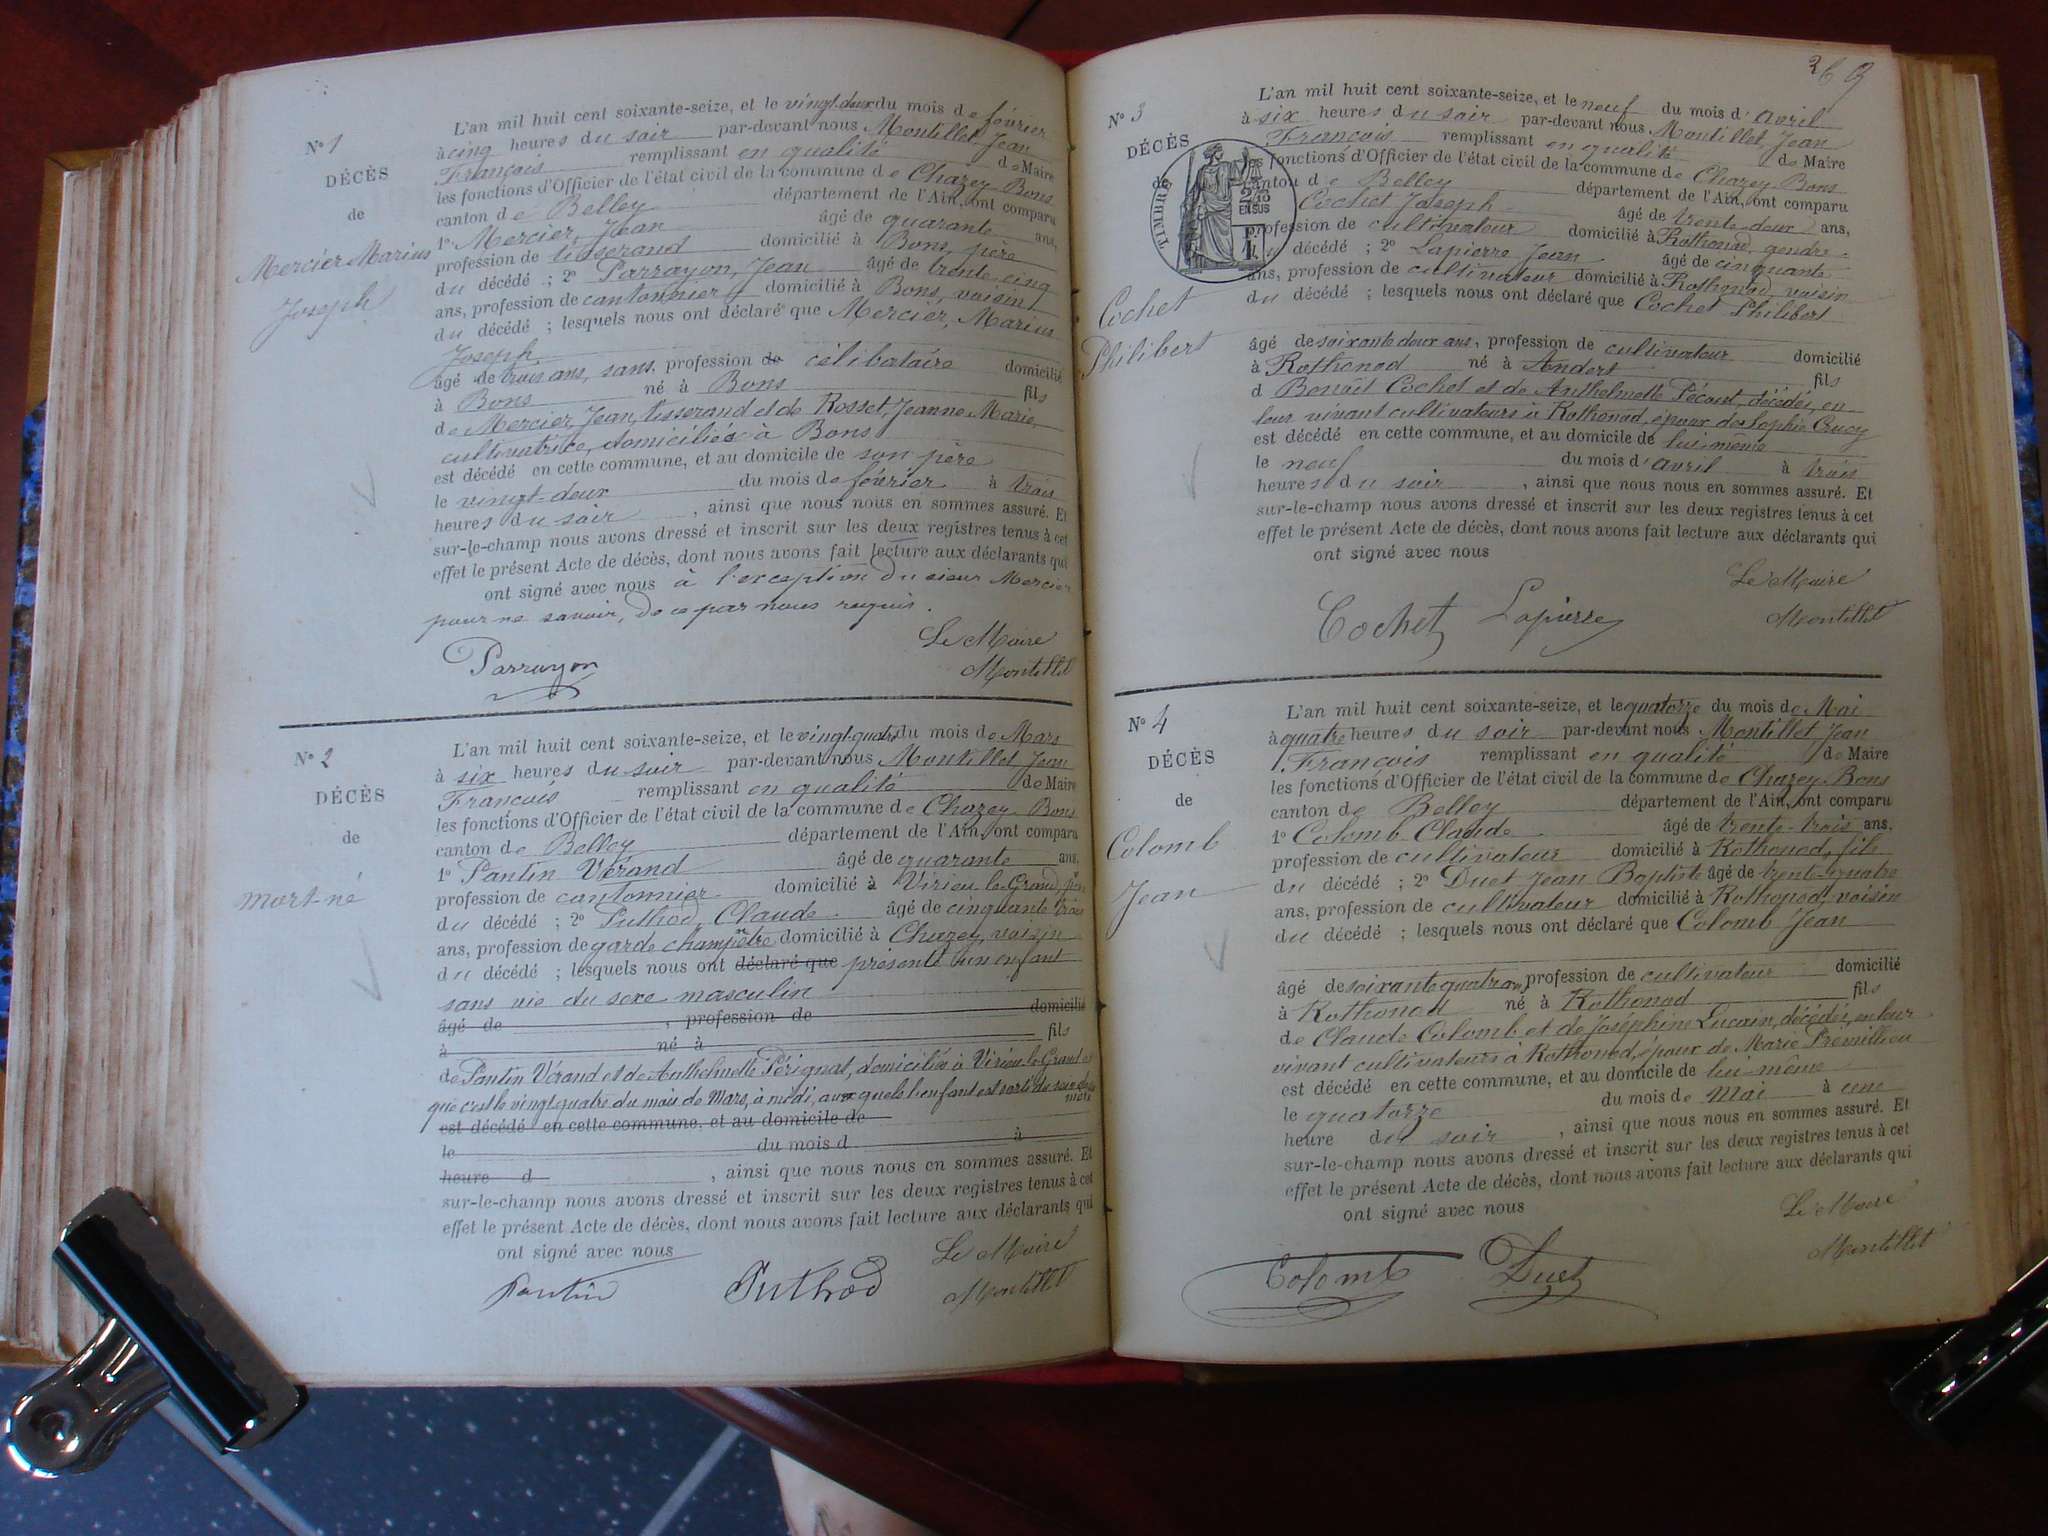 N° 1
DÉCÈS
de
Mercier Marius
Joseph
L'an mil huit cent soixante-seize, et le vingt-deux du mois de février
à cinq heures du soir par-devant nous Montillet Jean
François remplissant en qualité de Maire
les fonctions d'Officier de l'état civil de la commune de Chazey Bons
canton de Belley département de l'Ain, ont comparu
1° Mercier, Jean âgé de quarante ans,
profession de tisserand domicilié à Bons, père
du décédé ; 2° Parrayon, Jean âgé de trente cinq
ans, profession de cantonnier domicilié à Bons, voisin
du décédé ; lesquels nous ont déclaré que Mercier, Marius
Joseph
âgé de trois ans, sans profession de célibataire domicilié
à Bons né à Bons fils
de Mercier, Jean, tisserand et de Rosset, Jeanne Marie,
cultivatrice, domiciliés à Bons
est décédé en cette commune, et au domicile de son père
le vingt-deux du mois de février à trois
heures du soir , ainsi que nous nous en sommes assuré. Et
sur-le-champ nous avons dressé et inscrit sur les deux registres tenus à cet
effet le présent Acte de décès, dont nous avons fait lecture aux déclarants qui
ont signé avec nous à l'exception du sieur Mercier
pour ne savoir, de ce par nous requis.
Le Maire
Parrayon Montillet
N° 2
DÉCÈS
de
mort-né
L'an mil huit cent soixante-seize, et le vingt-quatre du mois de Mars
à six heures du soir par-devant nous Montillet Jean
François remplissant en qualité de Maire
les fonctions d'Officier de l'état civil de la commune de Chazey Bons
canton de Belley département de l'Ain, ont comparu
1° Pantin Vérand âgé de quarante ans,
profession de cantonnier domicilié à Virieu-le-Grand, père
du décédé ; 2° Puthod, Claude âgé de cinquante trois
ans, profession de garde champêtre domicilié à Chazey, voisin
du décédé ; lesquels nous ont déclaré que présenté un enfant
sans vie du sexe masculin
âgé de , profession de domicilié
à né à fils
de Pantin Vérand et de Anthelmette Pérignat, domiciliés à Virieu-le-Grand et
que c'est le vingt-quatre du mois de Mars, à midi, que l'enfant est sorti du sein de sa
mère
est décédé en cette commune, et au domicile de
le du mois d à
heure d , ainsi que nous nous en sommes assuré. Et
sur-le-champ nous avons dressé et inscrit sur les deux registres tenus à cet
effet le présent Acte de décès, dont nous avons fait lecture aux déclarants qui
ont signé avec nous
Le Maire
Pantin Puthod Montillet
N° 3
DÉCÈS
de
TIMBRE
2/10 EN SUS
Cochet
Philibert
L'an mil huit cent soixante-seize, et le neuf du mois d'avril
à six heures du soir par-devant nous Montillet, Jean
François remplissant en qualité de Maire
les fonctions d'Officier de l'état civil de la commune de Chazey Bons
canton de Belley département de l'Ain, ont comparu
Cochet Joseph âgé de trente-deux ans,
profession de cultivateur domicilié à Rothonod, gendre
décédé ; 2° Lapierre Jean âgé de cinquante
ans, profession de cultivateur domicilié à Rothonod voisin
du décédé ; lesquels nous ont déclaré que Cochet Philibert
âgé de soixante deux ans, profession de cultivateur domicilié
à Rothonod né à Andert fils
d Benoit Cochet et de Anthelmette Pécout, décédés, en
leur vivant cultivateurs à Rothonod, époux de Sophie Crucy
est décédé en cette commune, et au domicile de lui-même
le neuf du mois d'avril à trois
heures du soir , ainsi que nous nous en sommes assuré. Et
sur-le-champ nous avons dressé et inscrit sur les deux registres tenus à cet
effet le présent Acte de décès, dont nous avons fait lecture aux déclarants qui
ont signé avec nous
Le Maire
Cochet Lapierre Montillet
N° 4
DÉCÈS
de
Colomb
Jean
L'an mil huit cent soixante-seize, et le quatorze du mois de Mai
à quatre heures du soir par-devant nous Montillet Jean
François remplissant en qualité de Maire
les fonctions d'Officier de l'état civil de la commune de Chazey Bons
canton de Belley département de l'Ain, ont comparu
1° Colomb Claude âgé de trente-trois ans,
profession de cultivateur domicilié à Rothonod, fils
du décédé ; 2° Duet Jean Baptiste âgé de trente-quatre
ans, profession de cultivateur domicilié à Rothonod, voisin
du décédé ; lesquels nous ont déclaré que Colomb Jean
âgé de soixante quatre ans, profession de cultivateur domicilié
à Rothonod né à Rothonod fils
de Claude Colomb et de Joséphine Lucain, décédés, en leur
vivant cultivateurs à Rothonod, époux de Marie Prémillieu
est décédé en cette commune, et au domicile de lui-même
le quatorze du mois de Mai à une
heure du soir , ainsi que nous nous en sommes assuré. Et
sur-le-champ nous avons dressé et inscrit sur les deux registres tenus à cet
effet le présent Acte de décès, dont nous avons fait lecture aux déclarants qui
ont signé avec nous
Le Maire
Colomb Duet Montillet